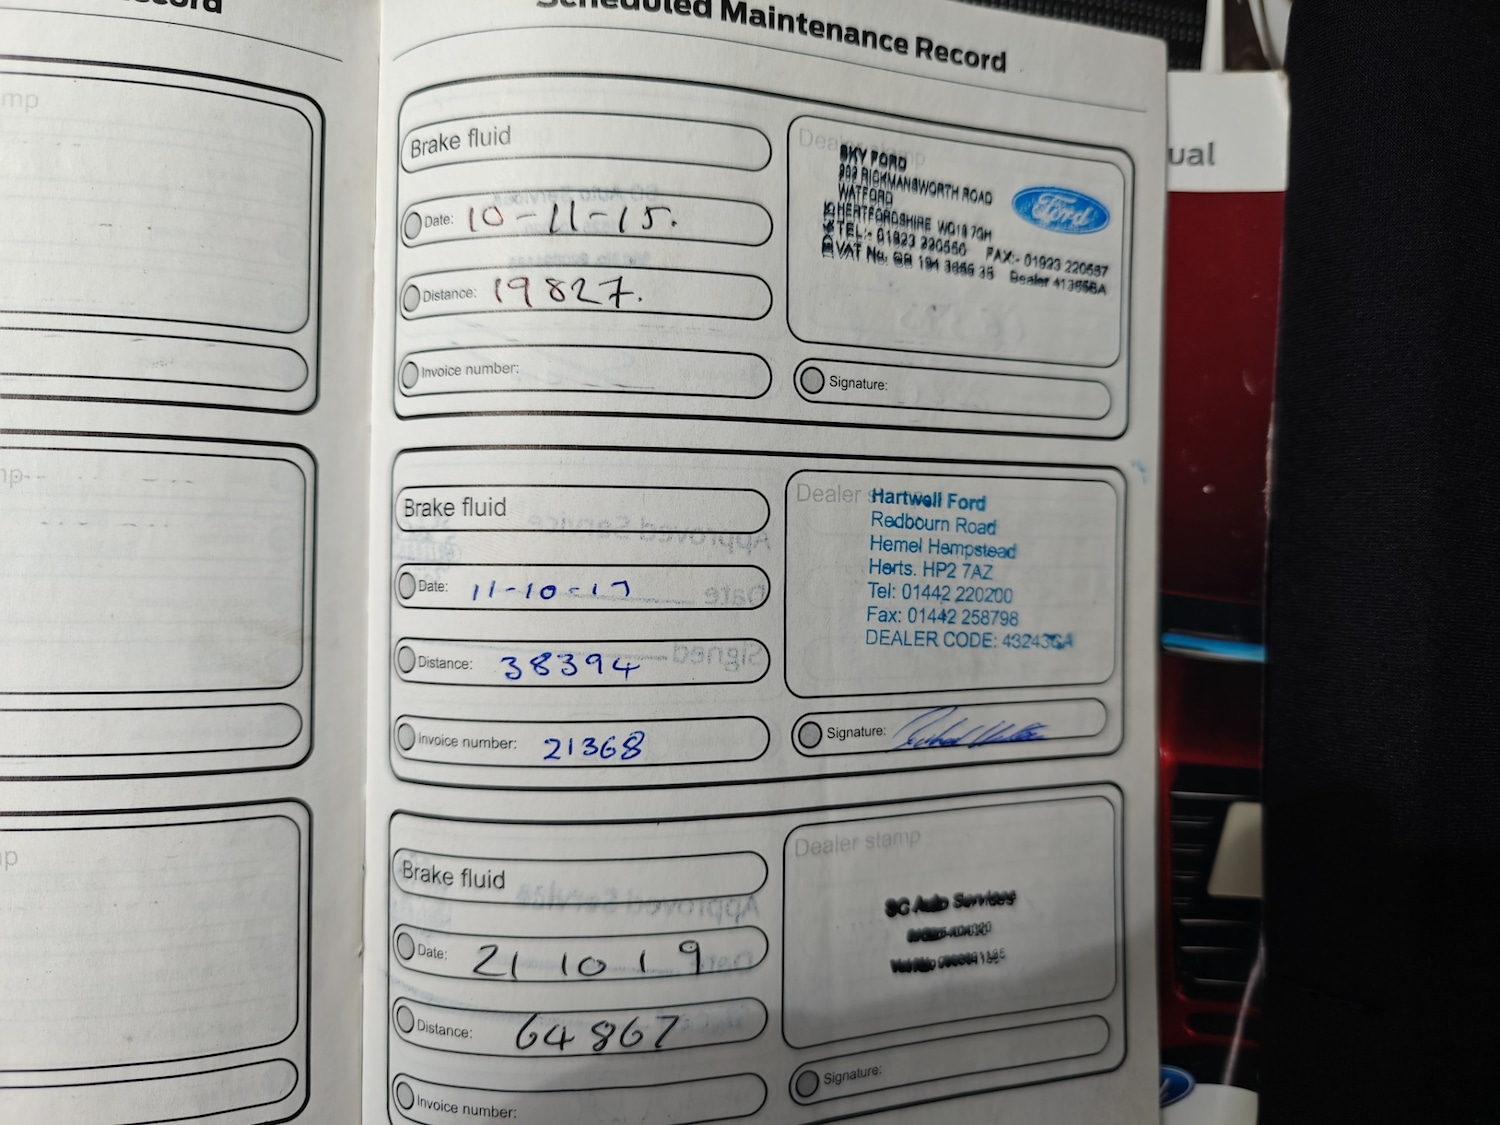 Scheduled Maintenance Record
Brake fluid
Date: 10-11-15.
Distance: 19827.
Invoice number:
Dealer stamp
SKY FORD
RICKMANSWORTH ROAD
WATFORD
HERTFORDSHIRE WD18 7QH
TEL:- 01923 220550 FAX:- 01923 220557
VAT No. GB 194 3656 35 Dealer
Ford
Signature:
Brake fluid
Date: 11-10-17
Distance: 38394
Invoice number: 21368
Dealer
Hartwell Ford
Redbourn Road
Hemel Hempstead
Herts. HP2 7AZ
Tel: 01442 220200
Fax: 01442 258798
DEALER CODE:
Signature:
Brake fluid
Date: 21 10 19
Distance: 64867
Invoice number:
Dealer stamp
SG Auto Services
Signature: